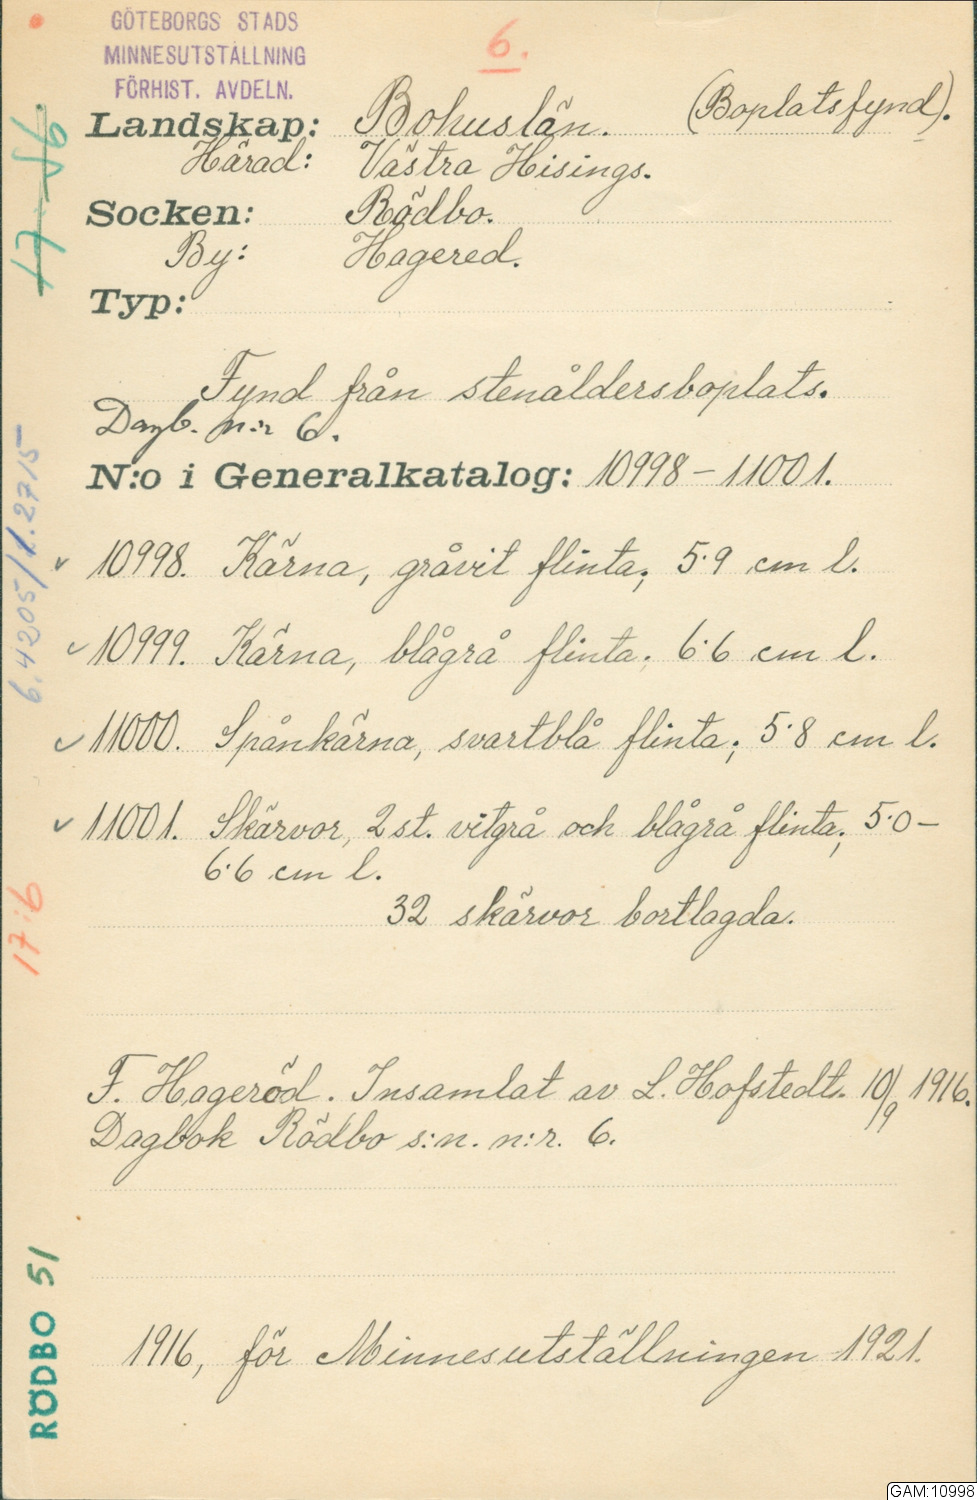 GÖTEBORGS STADS
MINNESUTSTÄLLNING
FÖRHIST. AVDELN.
6.
Landskap: Bohuslän. (Boplatsfynd).
Härad: Västra Hisings.
Socken: Rödbo.
By: Hagered.
Typ:
Fynd från stenåldersboplats.
Dagb. n:r 6.
N:o i Generalkatalog: 10998-11001.
10998. Kärna, gråvit flinta; 5·9 cm l.
10999. Kärna, blågrå flinta; 6·6 cm l.
11000. Spånkärna, svartblå flinta; 5·8 cm l.
11001. Skärvor, 2 st. vitgrå och blågrå flinta; 5·0-
6·6 cm l.
32 skärvor bortlagda.
F. Hageröd. Insamlat av L. Hofstedt. 10/9 1916.
Dagbok Rödbo s:n. n:r. 6.
1916, för Minnesutställningen 1921.
6.4205/1.2715
17:6
RÖDBO 51
GAM:10998